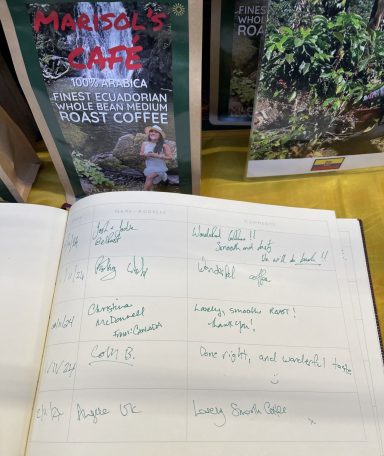 MARISOL'S
CAFÉ
100% ARABICA
FINEST ECUADORIAN
WHOLE BEAN MEDIUM
ROAST COFFEE
NAME / ADDRESS
COMMENTS
Belfast
Wonderful Coffee !!
Smooth and tasty
We will be back !!
Wonderful coffee
Christina
McDonnell
From: Canada
Lovely, smooth Roast!
Thank you!
Colm B.
Done right, and wonderful taste
Angie UK
Lovely Smooth Coffee
x